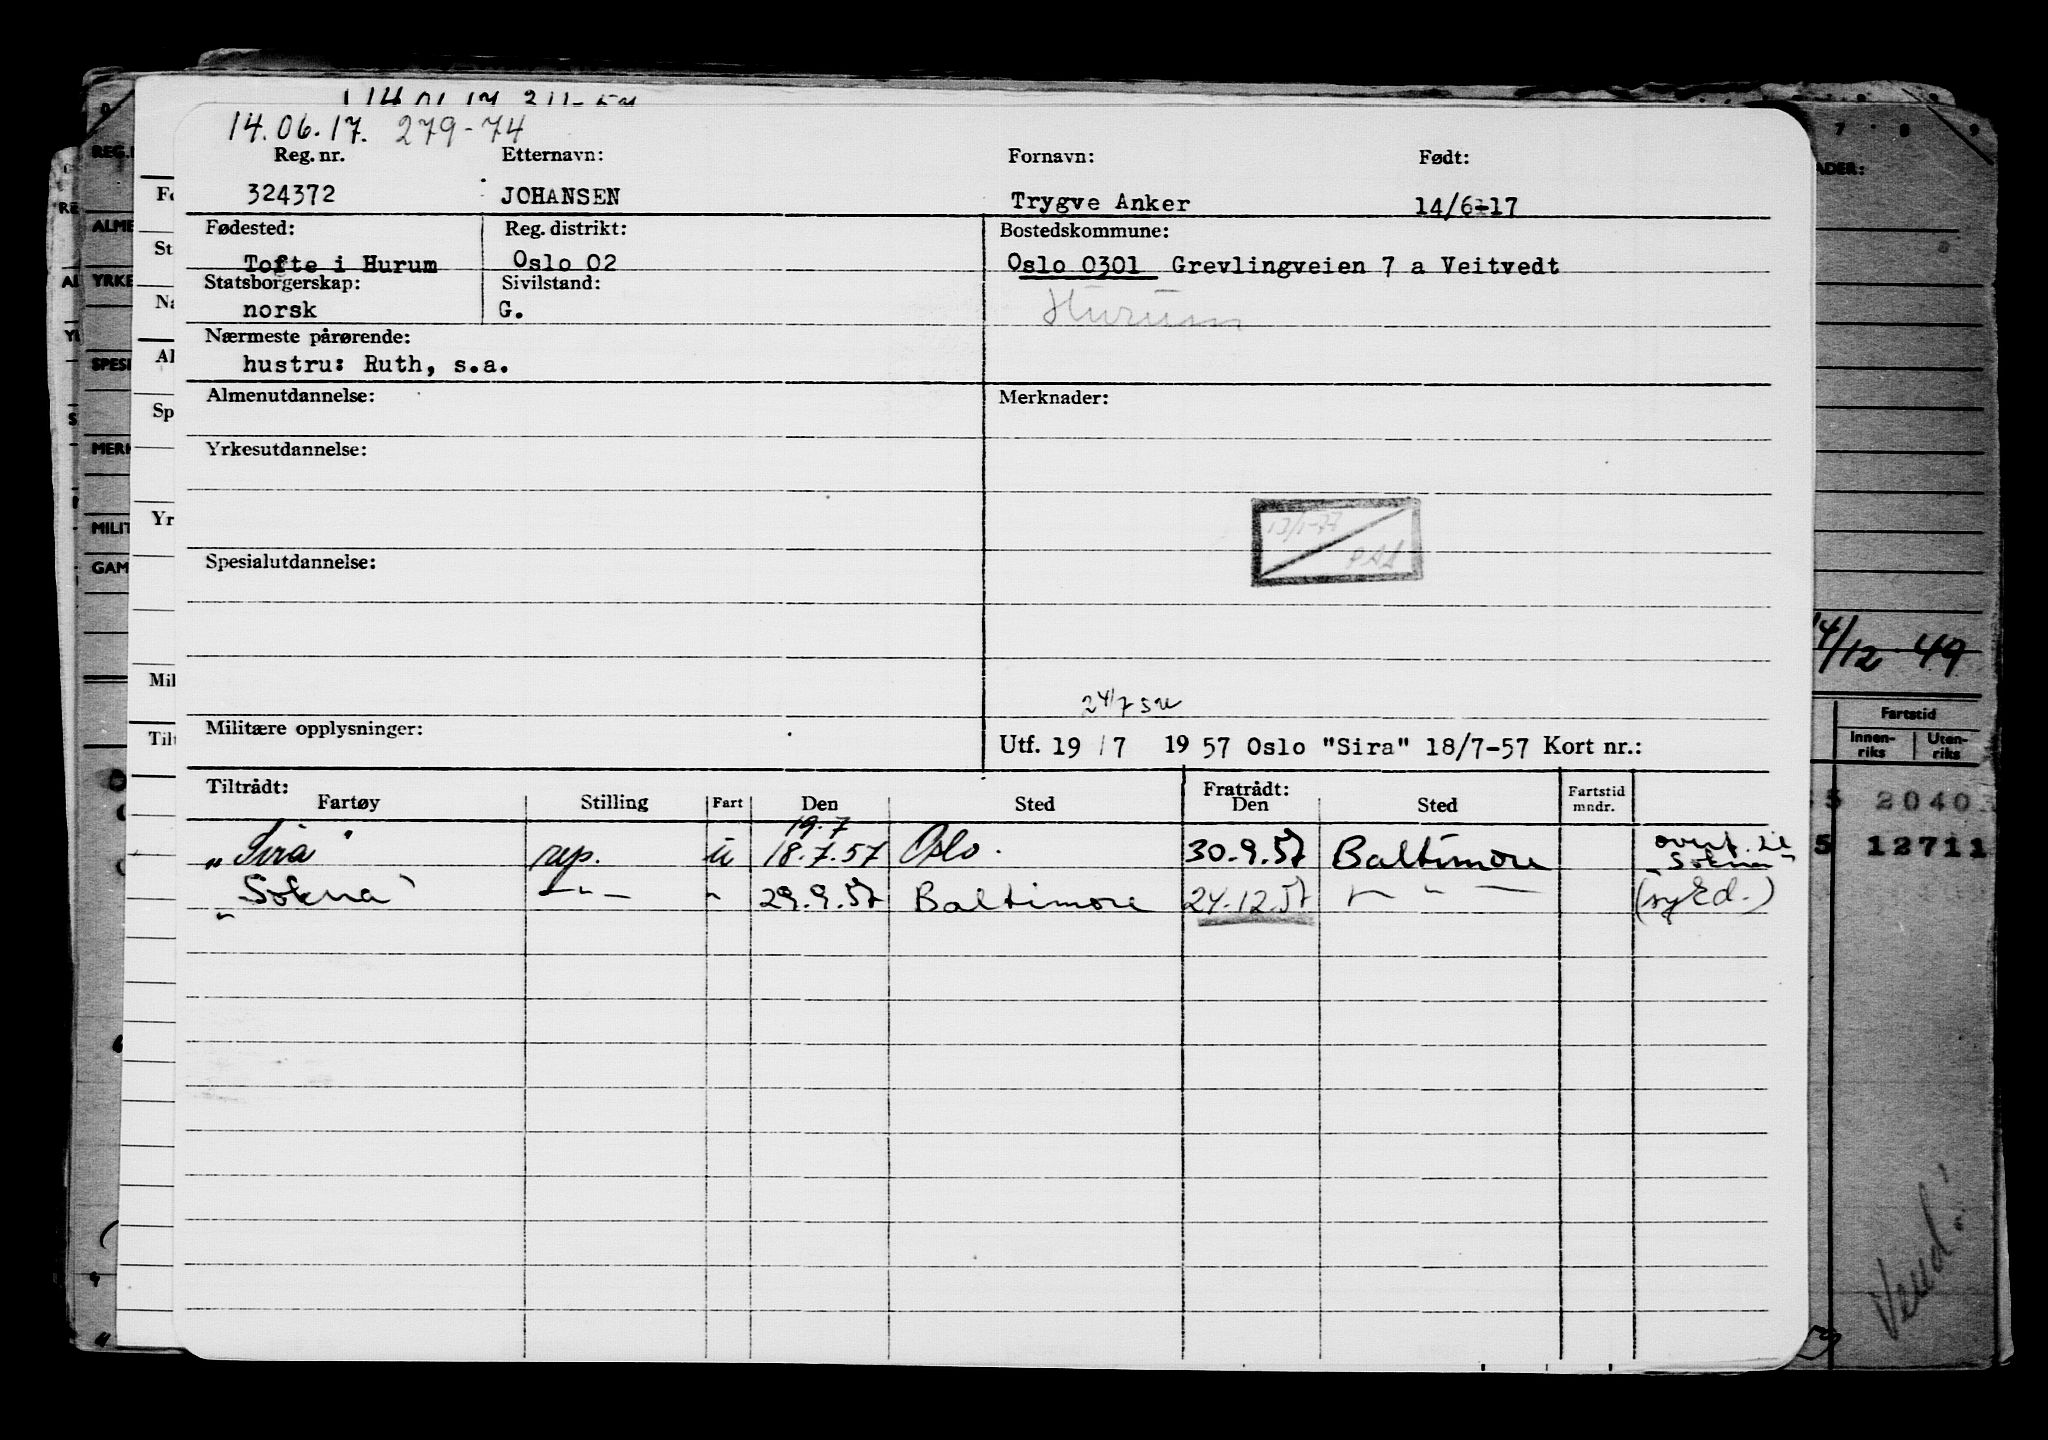 14.06.17. 279-74
Reg. nr. Etternavn: Fornavn: Født:
324372 JOHANSEN Trygve Anker 14/6-17
Fødested: Reg. distrikt: Bostedskommune:
Tofte i Hurum Oslo 02 Oslo 0301 Grevlingveien 7 a Veitvedt
Statsborgerskap: Sivilstand:
norsk G. Hurum
Nærmeste pårørende:
hustru: Ruth, s.a.
Almenutdannelse: Merknader:
Yrkesutdannelse:
13/1-77
Spesialutdannelse:
24/7
Militære opplysninger: Utf. 19/7 1957 Oslo "Sira" 18/7-57 Kort nr.:
Tiltrådt: Fratrådt:
Fartøy Stilling Fart Den Sted Den Sted Fartstid mndr.
19.7
"Sira" rep. u 18.7.57 Oslo. 30.9.57 Baltimore overf. til Sokna"
"Sokna" —"— " 29.9.57 Baltimore 24.12.57 —"— (sykd.)
14/12-49
Fartstid
Innen-riks Uten-riks
5 2040
5 12711
Vend!